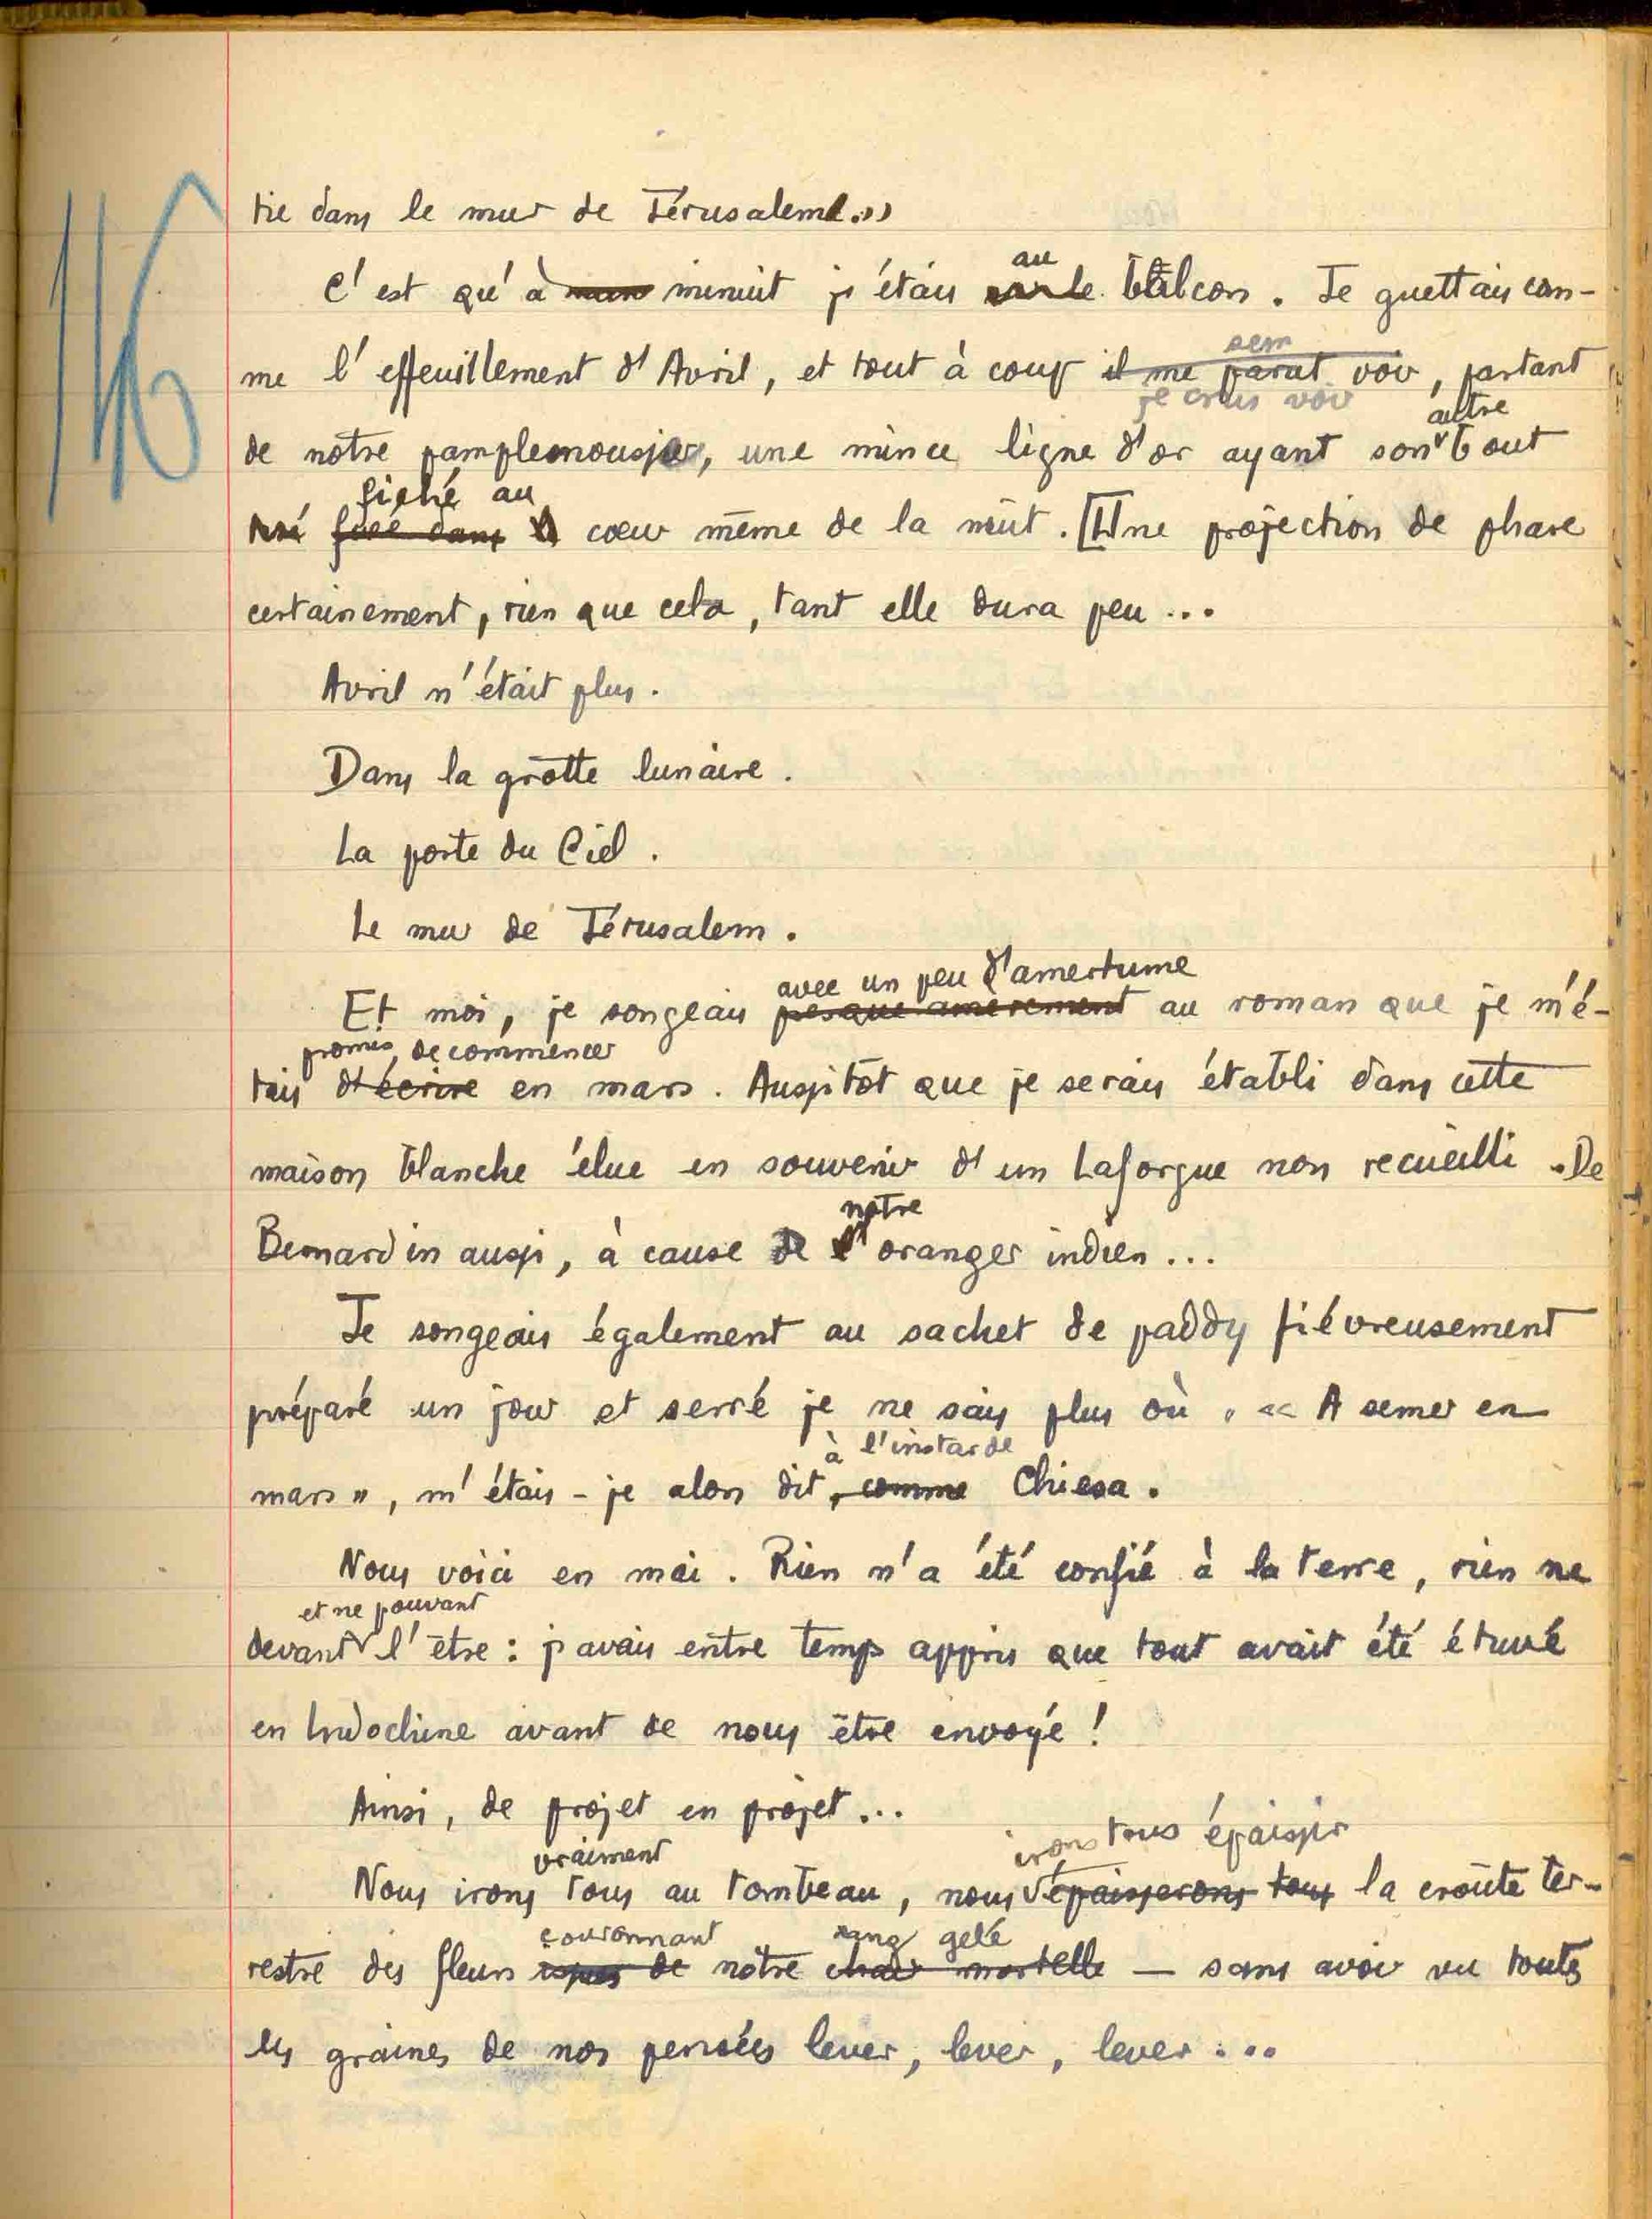 116
tie dans le mur de Jérusalem.»
au
C'est qu'à minuit j'étais sur le balcon. Je guettais com-
sem
me l'effeuillement d'Avril, et tout à coup il me parut voir, partant
je crus voir
autre
de notre pamplemoussier, une mince ligne d'or ayant son bout
fiché au
fixé dans cœur même de la nuit. [Une projection de phare
certainement, rien que cela, tant elle dura peu...
Avril n'était plus.
Dans la grotte lunaire.
La porte du Ciel.
Le mur de Jérusalem.
avec un peu d'amertume
Et moi, je songeais presque amèrement au roman que je m'é-
promis de commencer
tais d'écrire en mars. Aussitôt que je serais établi dans cette
maison blanche élue en souvenir d'un Laforgue non recueilli. De
notre
Bernardin aussi, à cause de l'oranger indien...
Je songeais également au sachet de paddy fiévreusement
préparé un jour et serré je ne sais plus où. « A semer en
à l'instar de
mars », m'étais-je alors dit, comme Chiesa.
Nous voici en mai. Rien n'a été confié à la terre, rien ne
et ne pouvant
devant l'être : j'avais entre temps appris que tout avait été étuvé
en Indochine avant de nous être envoyé !
Ainsi, de projet en projet...
vraiment irons tous épaissir
Nous irons tous au tombeau, nous épaissirons tous la croûte ter-
couronnant sang gelé
restre des fleurs de notre chair mortelle — sans avoir vu toutes
les graines de nos pensées lever, lever, lever...